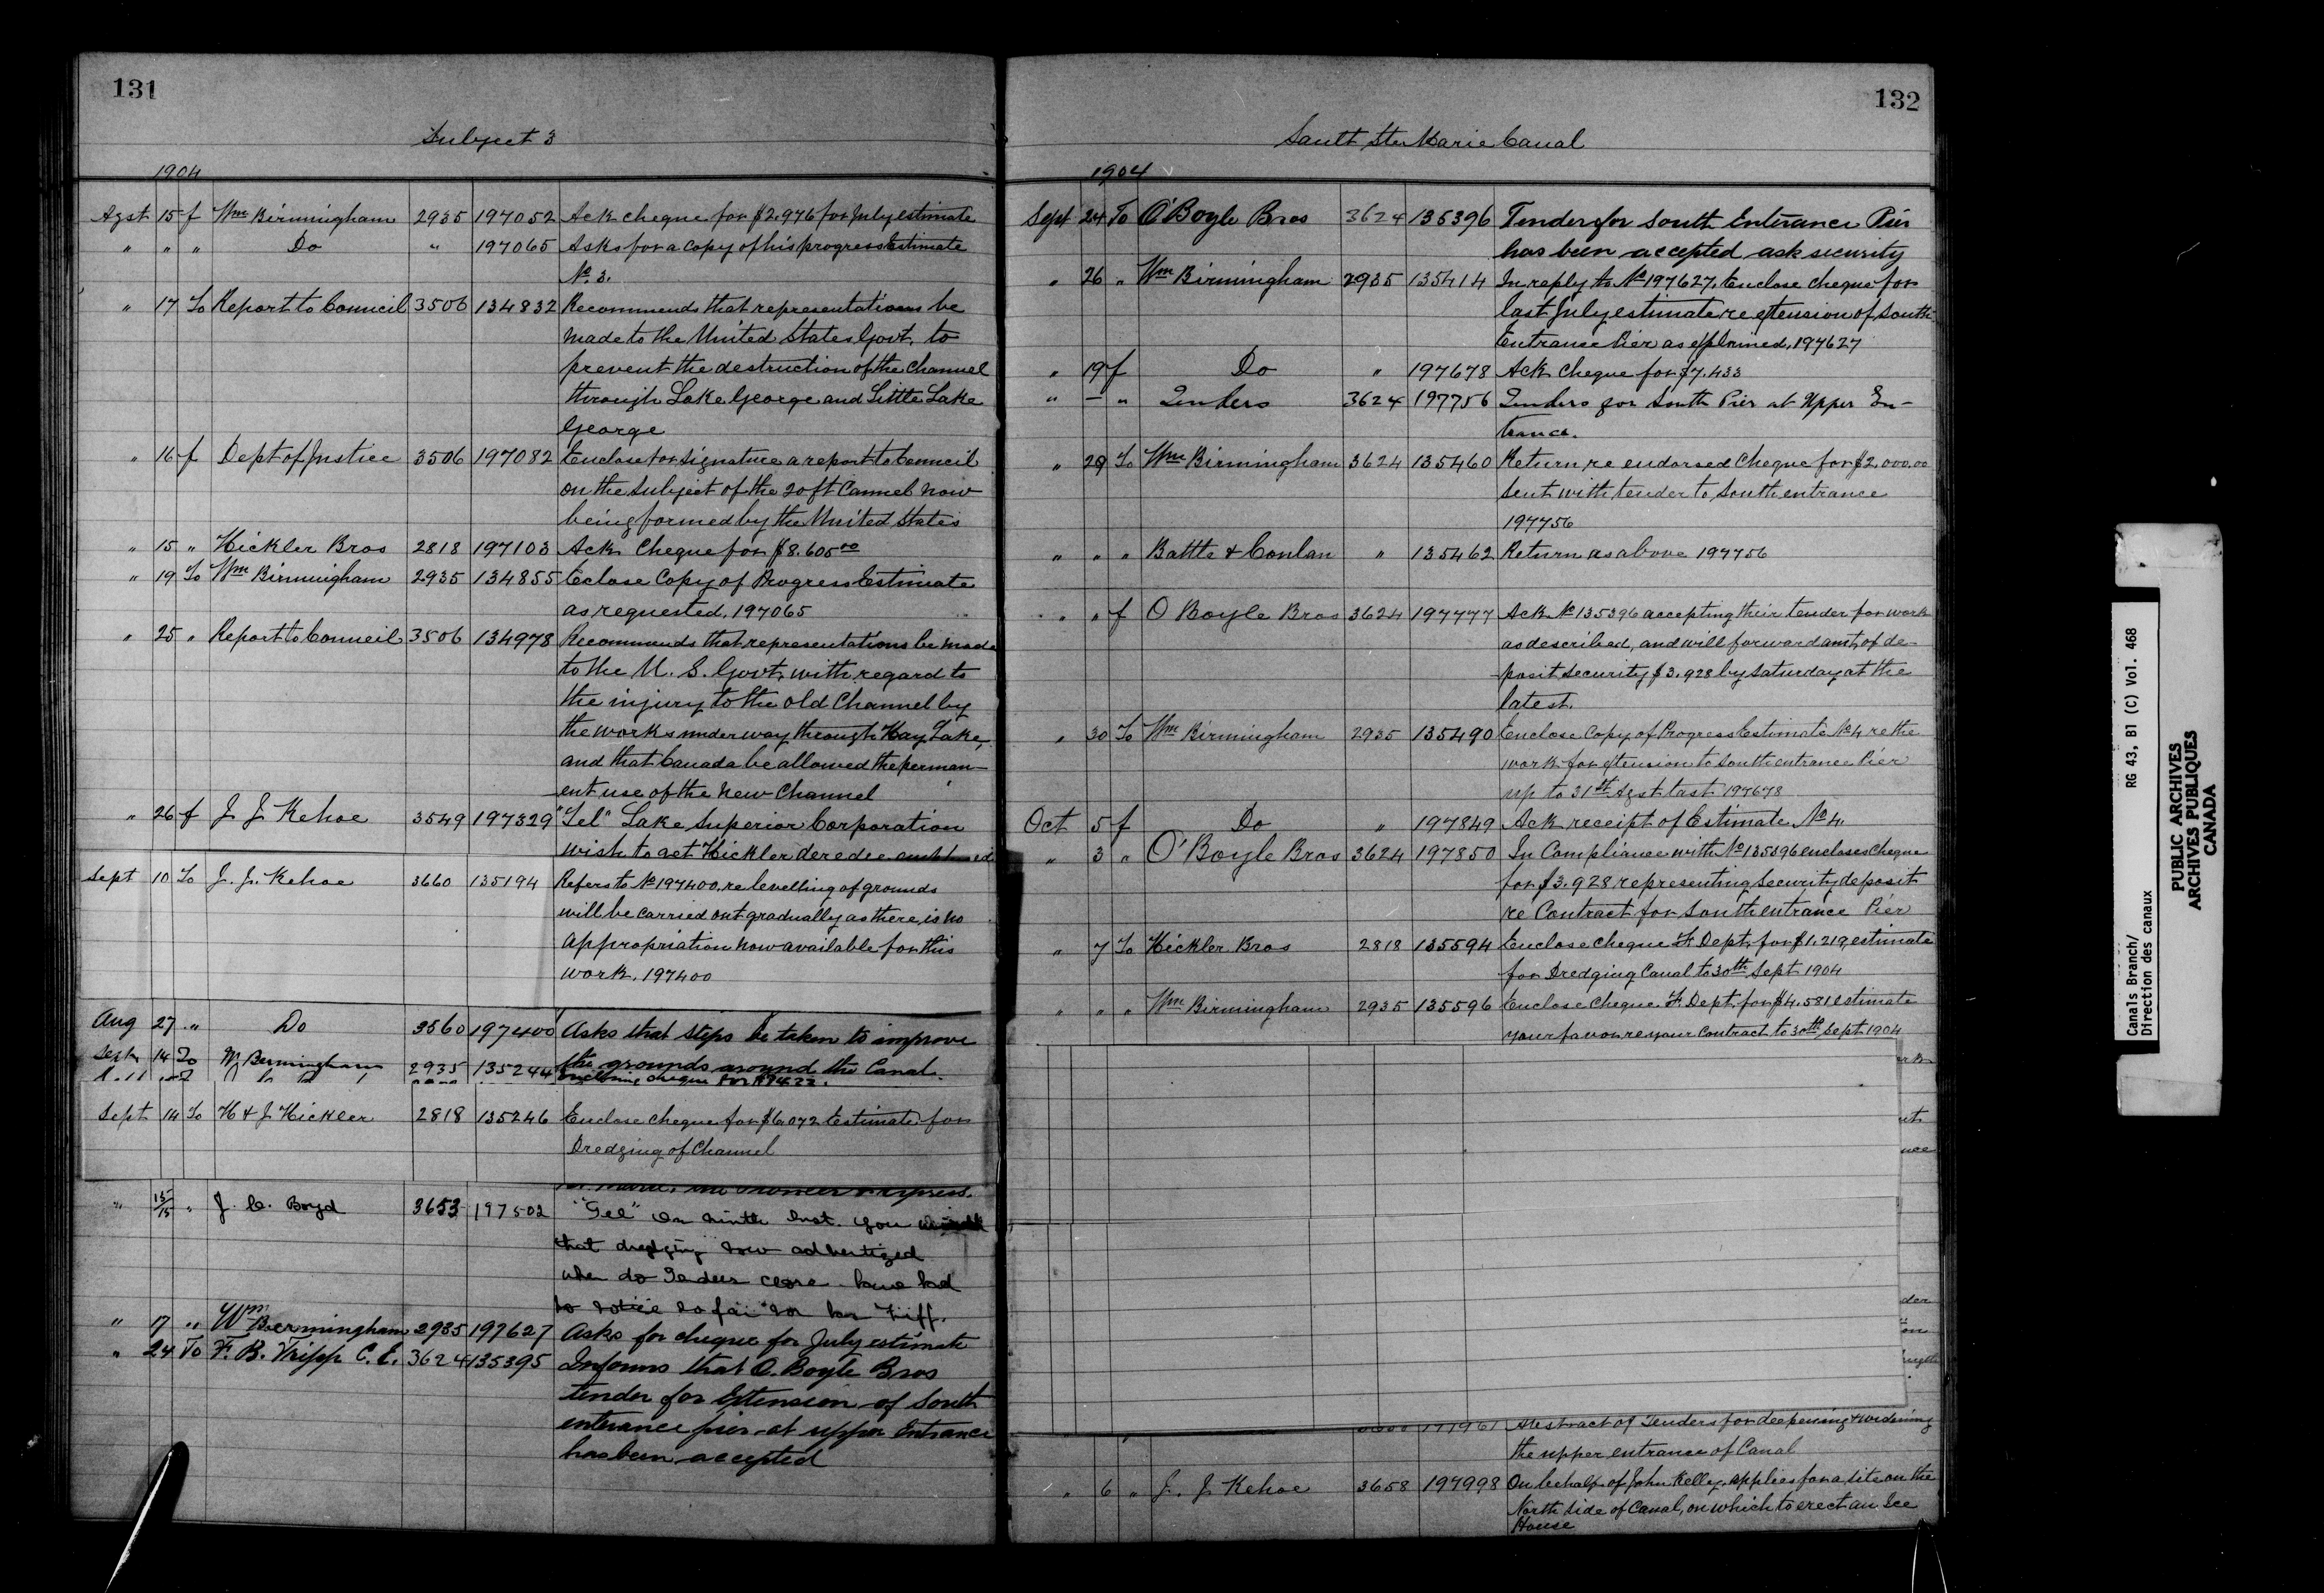 131
Subject 3
1904
Agst 15 f Wm Birmingham 2935 197052 Ack cheque for $2.976 for July estimate
" " " Do " 197065 Asks for a copy of his progress Estimate
No 3.
" 17 To Report to Council 3506 134832 Recommends that representations be
made to the United States Govt. to
prevent the destruction of the Channel
through Lake George and Little Lake
George
" 16 f Dept of Justice 3506 197082 Enclose for signature a report to Council
on the subject of the 20 ft Cannel now
being formed by the United States
" 15 " Hickler Bros 2818 197103 Ack Cheque for $8.605.00
" 19 To Wm Birmingham 2935 134855 Eclose Copy of Progress Estimate
as requested. 197065
" 25 " Report to Council 3506 134978 Recommends that representations be made
to the U. S. Govt. with regard to
the injury to the old Channel by
the works underway through Hay Lake,
and that Canada be allowed the perman-
ent use of the new Channel
" 26 f J J Kehoe 3549 197329 "Tel" Lake Superior Corporation
wish to get Hickler dredge
Sept 10 To J. J. Kehoe 3660 135194 Refers to No 197400. re levelling of grounds
will be carried out gradually as there is no
appropriation now available for this
work. 197400
Aug 27 " Do 3560 197400 Asks that steps be taken to improve
the grounds around the Canal.
Sept 14 To Wm Birmingham 2935 135244 Enclosing cheque for
Sept 14 To H & J Hickler 2818 135246 Enclose cheque for $6.072 Estimate for
Dredging of Channel
" 13/15 " J. C. Boyd 3653 197502 "Tel" On ninth Inst. you
that dredging now advertized
when do Tenders close have had
no notice so far
" 17 " Wm Bermingham 2935 197627 Asks for cheque for July estimate
" 24 To F. B. Fripp C. E. 3624 135395 Informs that O. Boyle Bros
tender for Extension of South
entrance pier at upper Entrance
has been accepted
132
Sault Ste Marie Canal
1904
Sept 24 To O'Boyle Bros 3624 135396 Tender for South Enterance Pier
has been accepted ask security
" 26 " Wm Birmingham 2935 135414 In reply to No 197627. Enclose cheque for
last July estimate re extension of South
Entrance Pier as explained, 197627
" 19 f Do " 197678 Ack cheque for $7.433
" — " Tenders 3624 197756 Tenders for South Pier at Upper En-
trance.
" 29 To Wm Birmingham 3624 135460 Return re endorsed Cheque for $2.000.00
sent with tender to South entrance
197756
" " " Battle & Conlan " 135462 Return as above 197756
" " f O Boyle Bros 3624 197777 Ack No 135396 accepting their tender for work
as described, and will forward amt. of de-
posit security $3.928 by Saturday at the
latest.
" 30 To Wm Birmingham 2935 135490 Enclose Copy of Progress Estimate No 4 re the
work for extension to South entrance Pier
up to 31st Agst last 197678
Oct 5 f Do " 197849 Ack receipt of Estimate No 4.
" 3 " O'Boyle Bros 3624 197850 In Compliance with No 135396 encloses Cheque
for $3.928 representing Security deposit
re Contract for South entrance Pier
" 7 To Hickler Bros 2818 135594 Enclose cheque F. Dept. for $1.219, estimate
for Dredging Canal to 30th Sept 1904
" " " Wm Birmingham 2935 135596 Enclose Cheque F. Dept. for $4.581 estimate
your favour re your Contract to 30th Sept 1904
197961 Abstract of Tenders for deepening & widening
the upper entrance of Canal
" 6 " J. J Kehoe 3658 197998 On behalf of John Kelley, applies for a site on the
North side of Canal, on which to erect an Ice
House
Canals Branch/ RG 43, B1 (C) Vol. 468
Direction des canaux
PUBLIC ARCHIVES
ARCHIVES PUBLIQUES
CANADA